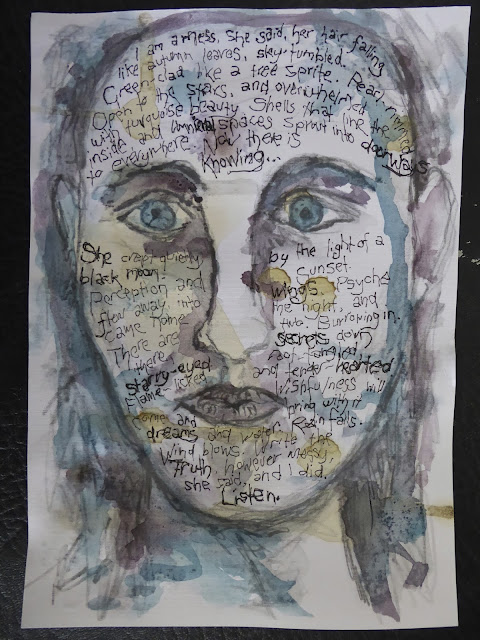 I am a mess, she said, her hair falling
like autumn leaves, sky-tumbled.
Green clad like a tree sprite. Pearl
Open to the stars, and overwhelmed
with turquoise beauty. Shells that line the
inside and liminal spaces sprout into doorways
to everywhere. Now there is
Knowing...
She crept quietly by the light of a
black moon. Sunset
perception and wings. Psyche
flew away, into the night, and
came home two. Burrowing in.
There are secrets down
there root-tangled
starry-eyed and tender-hearted
Flame-licked Wishfulness will
memories and bring with it
dreams and water. Rain falls.
Wind blows. Write the
Truth, however messy,
she said, and I did.
Listen.